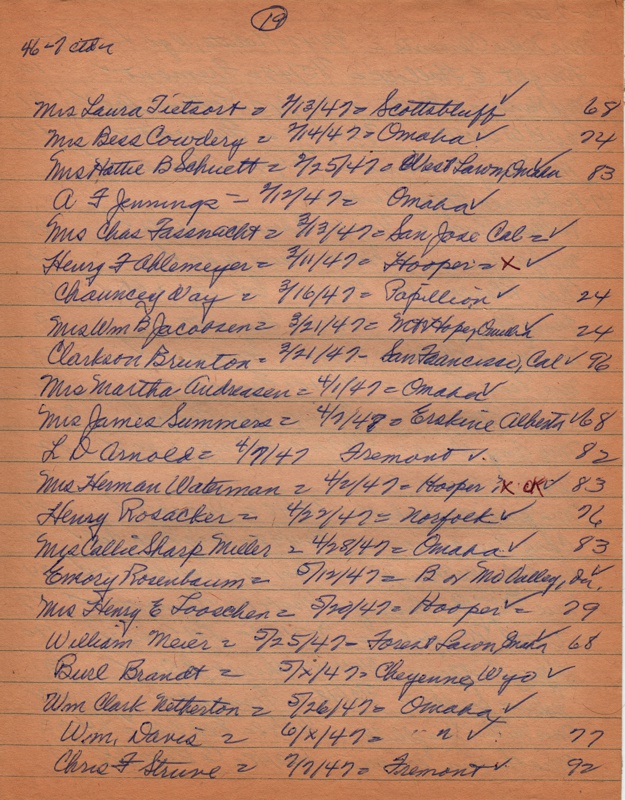 19
46-7
Mrs Laura Tietsort = 2/13/47 = Scottsbluff ✓ 68
Mrs Bess Cowdery = 2/14/47 = Omaha ✓ 74
Mrs Hattie B Schuett = 2/25/47 = West Lawn, Omaha 83
A F Jennings = 2/12/47 = Omaha ✓
Mrs Chas Fassnacht = 3/13/47 = San Jose Cal = ✓
Henry F Ahlemeyer = 3/11/47 = Hooper = x ✓
Chauncey Way = 3/16/47 = Papillion ✓ 24
Mrs Wm B Jacobsen = 3/21/47 = Mt Hope, Omaha 24
Clarkson Brunton = 3/21/47 - San Francisco, Cal ✓ 96
Mrs Martha Andreasen = 4/1/47 = Omaha ✓
Mrs James Summers = 4/7/48 = Erskine Alberts ✓ 68
L D Arnold = 4/7/47 Fremont ✓. 82
Mrs Herman Waterman = 4/2/47 = Hooper x ok ✓ 83
Henry Rosacker = 4/22/47 = Norfolk ✓ 76
Mrs Callie Sharp Miller = 4/28/47 = Omaha ✓ 83
Emory Rosenbaum = 5/12/47 = B of Mo Valley, Ia.
Mrs Henry E Looschen = 5/20/47 = Hooper = 79
William Meier = 5/25/47 - Forest Lawn 68
Burl Brandt = 5/x/47 = Cheyenne, Wyo ✓
Wm Clark Netherton = 5/26/47 = Omaha ✓
Wm. Davis = 6/x/47 = " " ✓ 77
Chris F Struve = 7/7/47 = Fremont ✓ 92